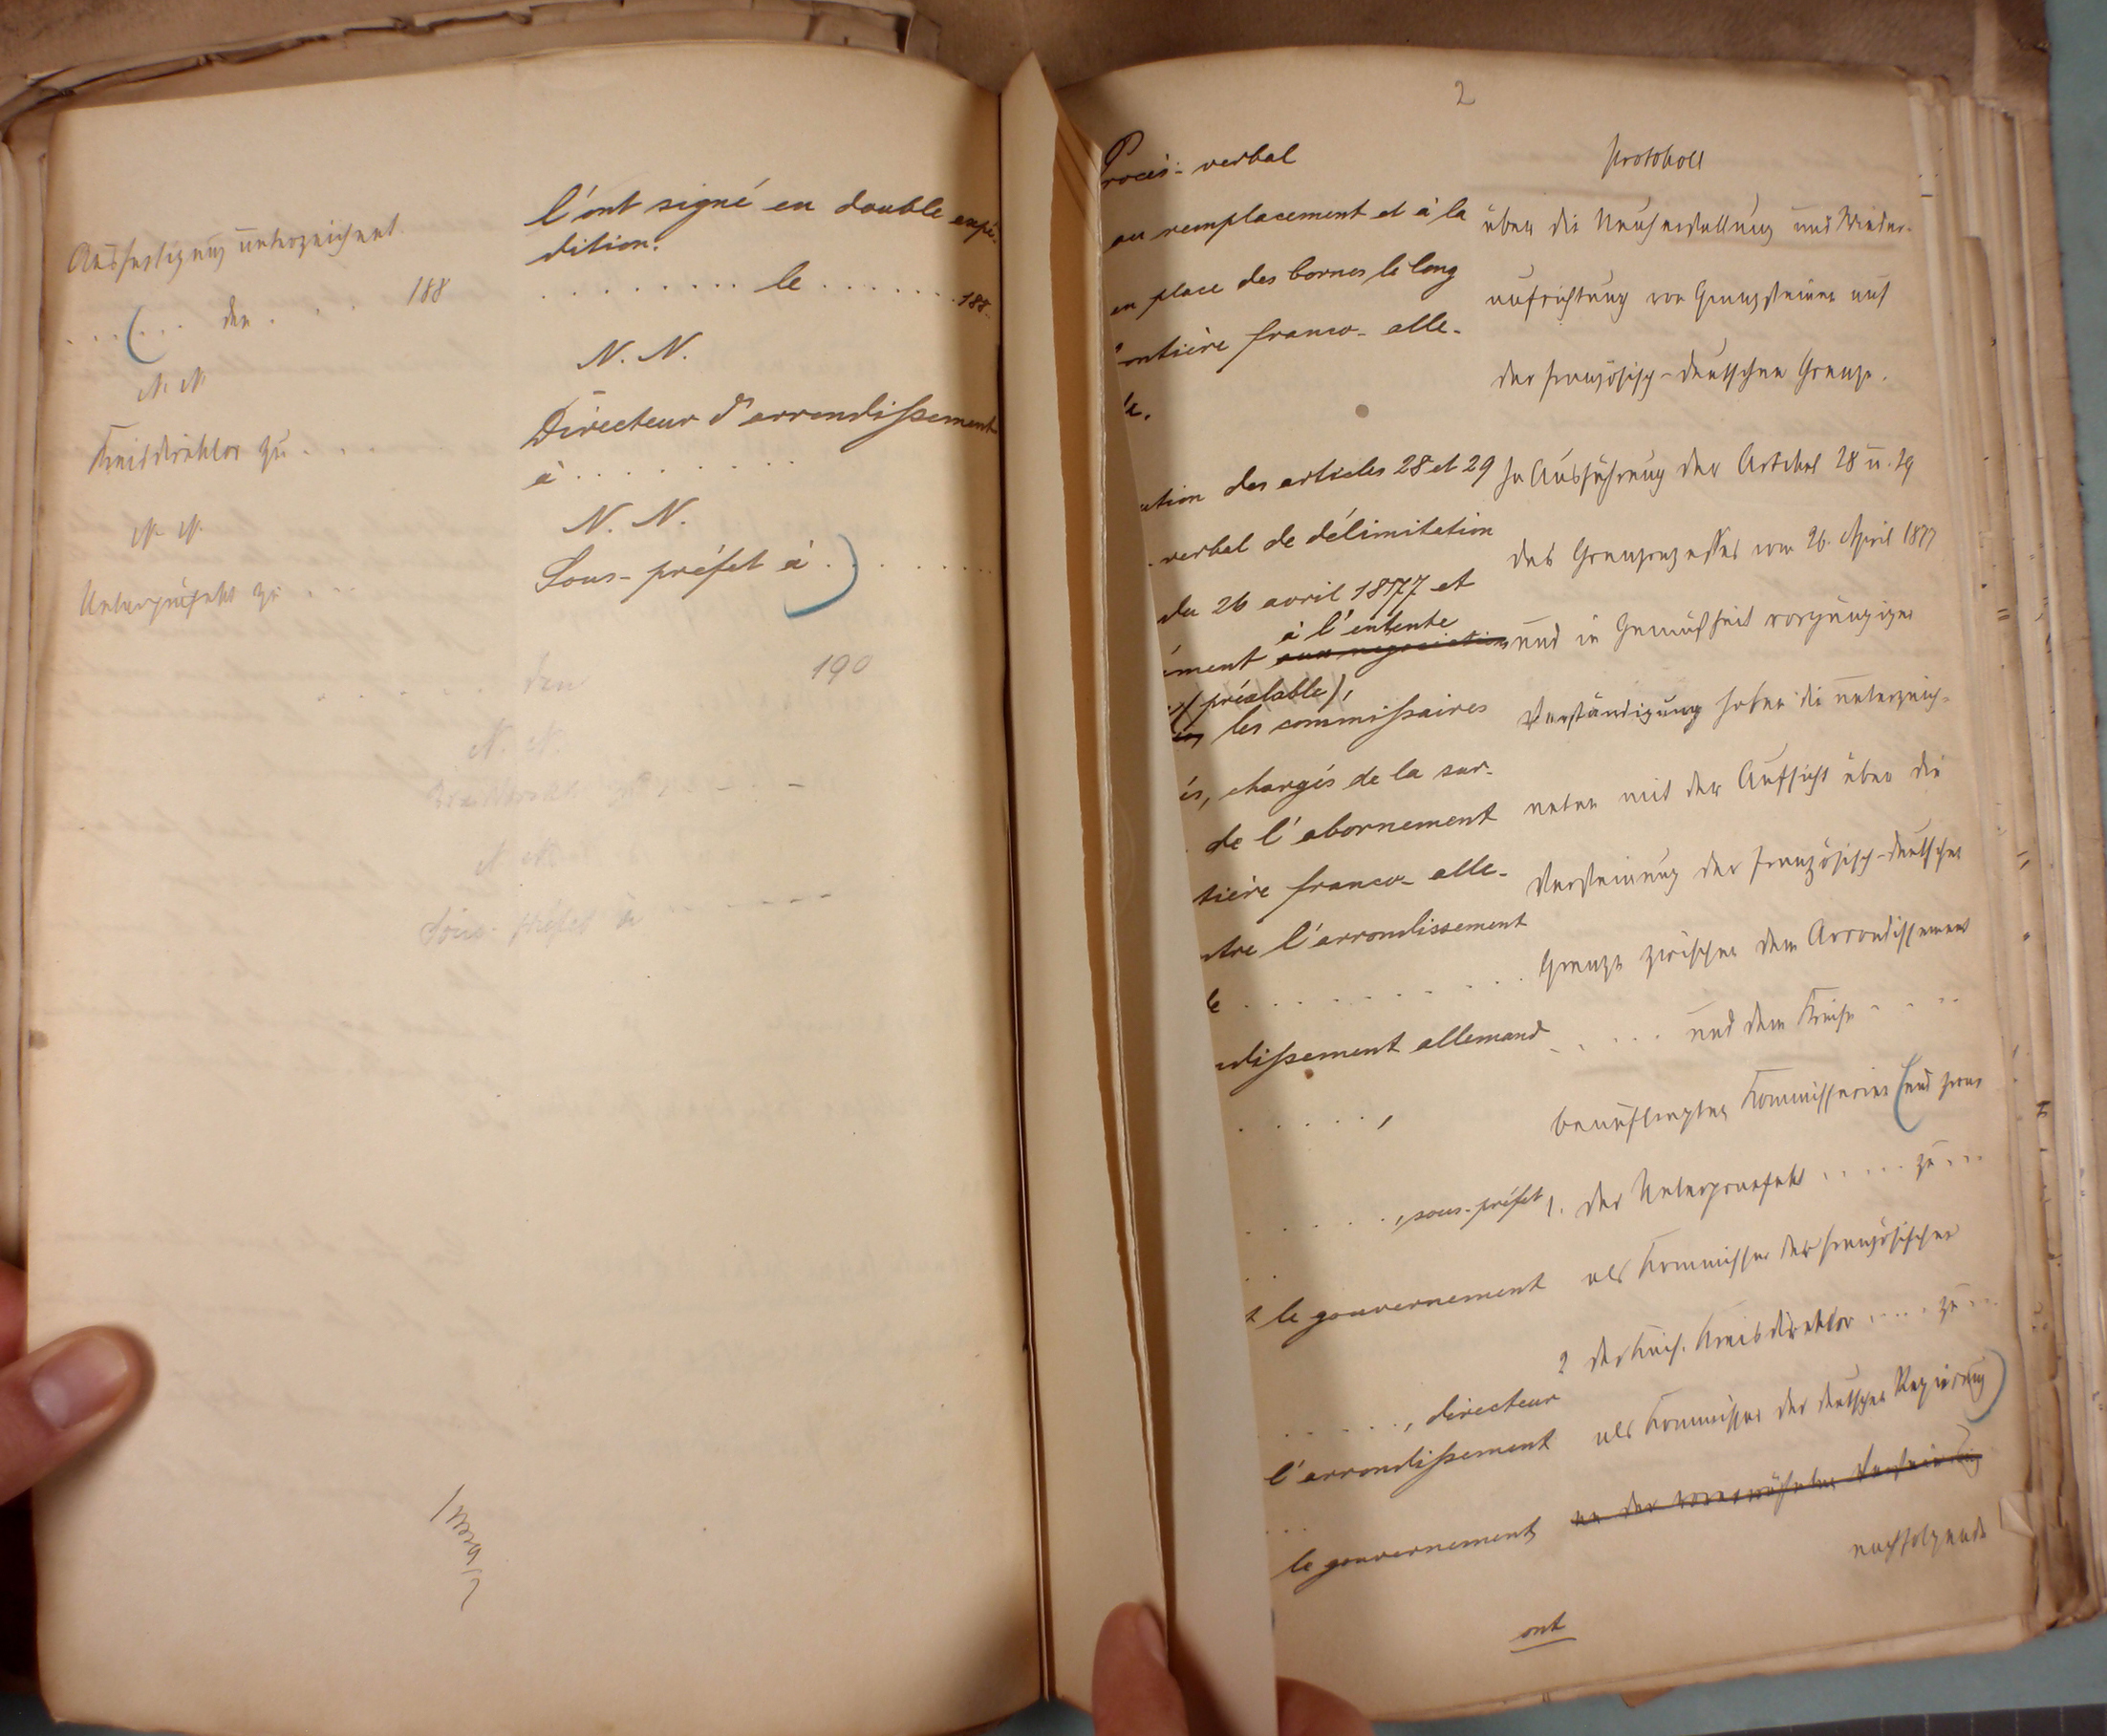 Ausfertigung unterzeichnet.
. . . . . . den . . . . 188
N. N.
Kreisdirektor zu . . . . .
N. N.
Unterpräfekt zu . . . .
l'ont signé en double expé-
dition.
. . . . . . . . . le . . . . . . . 188..
N. N.
Directeur d'arrondissement
à . . . . . . . . .
N. N.
Sous-préfet à . . . . . . . .
. . . . . . den 190
N. N.
zu . . . . .
N. N.
Sous-préfet à . . . . . .
2
Procès-verbal
au remplacement et à la
en place des bornes le long
ontière franco-alle-
des articles 28 et 29
verbal de délimitation
du 26 avril 1877 et
à l'entente
ément aux négociations
(préalable),
les commissaires
és, chargés de la sur-
de l'abornement
tière franco-alle-
ntre l'arrondissement
le . . . . . . . . . . . .
ndissement allemand
. . . . . ,
. . . . . , sous-préfet
le gouvernement
. . . . . , directeur
l'arrondissement
le gouvernement
ont
Protokoll
über die Neuherstellung und Wieder-
aufrichtung von Grenzsteinen auf
der französisch-deutschen Grenze.
In Ausführung der Artikel 28 u. 29
des Grenzrezesses vom 26. April 1877
und in Gemäßheit vorgängiger
Verständigung haben die unterzeich-
neten mit der Aufsicht über die
Versteinung der französisch-deutschen
Grenze zwischen dem Arrondissement
. . . . . und dem Kreise . . . .
beauftragten Kommissarien (und zwar
1. der Unterpraefekt . . . . . zu . . .
als Kommissar der französischen
2 der Kais. Kreisdirektor . . . . zu . . .
als Kommissar der deutschen Regierung)
an der vorerwähnten Versteinung
nachfolgende